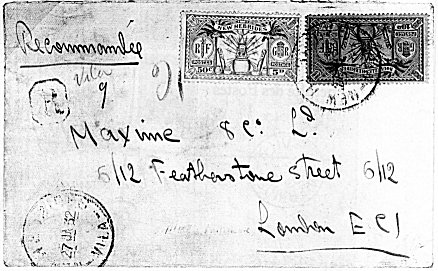 Recommandée
NEW HEBRIDES
RF
50c 5d
Vila
9
R
Maxime & Co. Ld.
6/12 Featherstone Street 6/12
London E C 1
27 JA 32
VILA